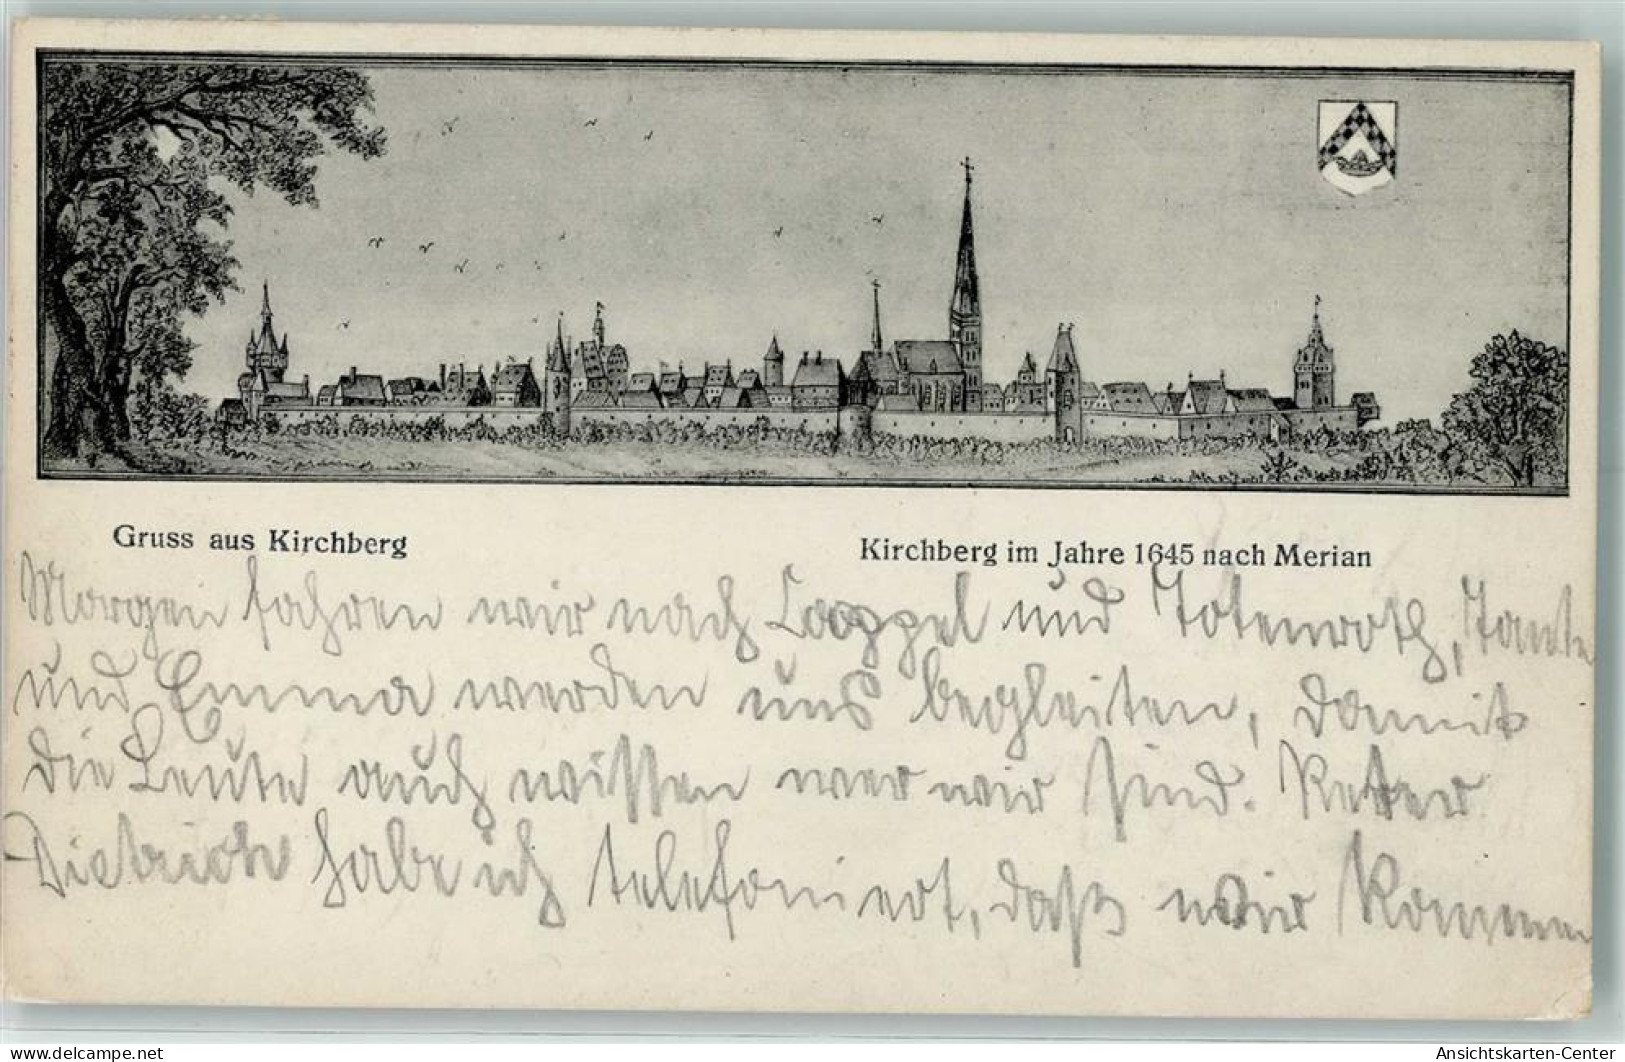 Gruss aus Kirchberg
Kirchberg im Jahre 1645 nach Merian
Morgen fahren wir nach Cappel und Totenroth, Tante
und Emma werden uns begleiten, damit
die Leute auch wissen wer wir sind. Retter
Dietrich habe ich telefoniert, daß wir kommen
delcampe.net
Ansichtskarten-Center